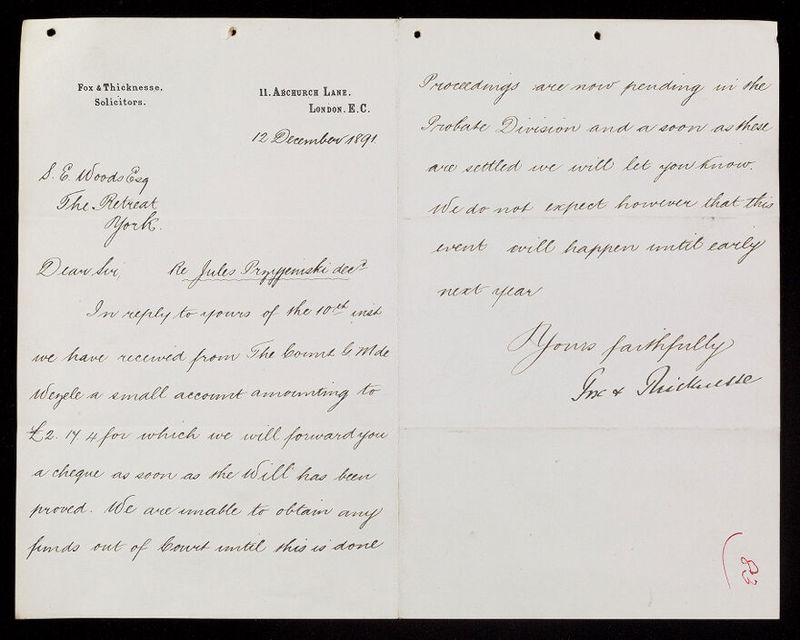 Fox & Thicknesse.
Solicitors.
11. Abchurch Lane.
London. E.C.
12 December 1891
S. E. Woods Esq
The Retreat
York.
Dear Sir, Re Jules decd
In reply to yours of the 10th inst
we have received from The Count G. M de
a small account amounting to
£2. 17 4 for which we will forward you
a cheque as soon as the Will has been
proved. We are unable to obtain any
funds out of Court until this is done
Proceedings are now pending in the
Probate Division and a soon as these
are settled we will let you know.
We do not expect however that this
event will happen until early
next year
Yours faithfully
Fox & Thicknesse